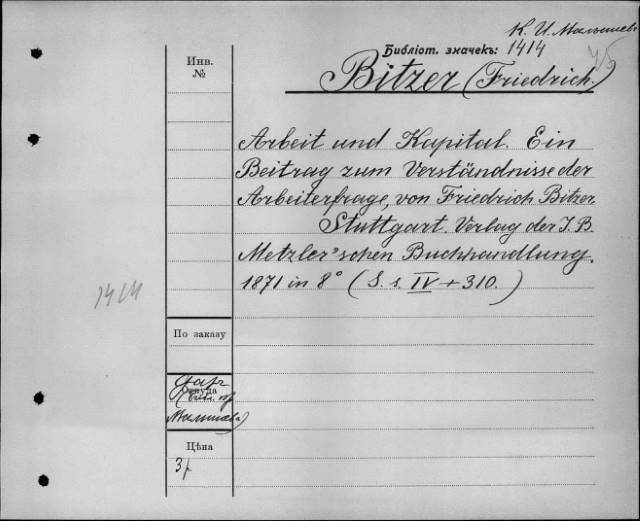 К. И. Малышев
Библіот. значекъ: 1414
Инв.
№
Bitzer (Friedrich.)
Arbeit und Kapital. Ein
Beitrag zum Verständnisse der
Arbeiterfrage, von Friedrich Bitzer
Stuttgart. Verlag der J. B.
Metzler'schen Buchhandlung.
1871 in 8° (S. s. IV + 310.)
1414
По заказу
Даръ
Откуда
Малышева)
Цѣна
3 р